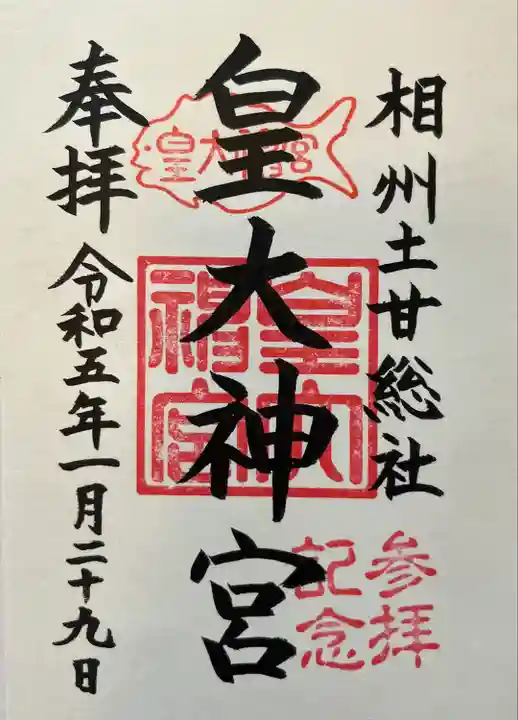 相州土甘総社
皇大神宮
奉拝 令和五年一月二十九日
皇大神宮
皇大神宮
参拝
記念